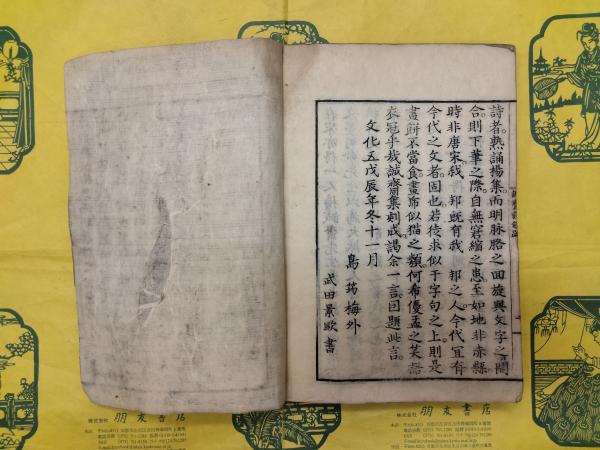 詩者熟誦楊集而明脉胳之回旋與文字之開
合則下筆之際自無窘縮之患至如地非赤縣
時非唐宋我 邦既有我 邦之人今代冝有
今代之文者固也若徒求似于字句之上則是
畫餅不當食畫帍似猫之類何希優孟之笑
衣冠乎哉誠齋集刻成謁余一言因題此言
文化五戊辰年冬十一月
島筠梅外
武田景歐書
株式会社 朋友書店
株式会社 朋友書店